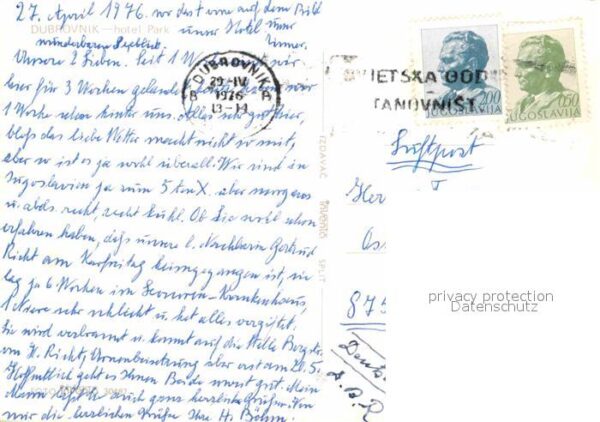 27. April 1976. wo das eine auf dem Bild
DUBROVNIK — hotel Park
unser Hotel unser
wunderbaren Seeblick. Zimmer.
Unsere 2 Lieben. Seit 1 Woche wir
hier für 3 Wochen gelandet,
1 Woche schon hinter uns. Alles sehr gut hier,
bloß das liebe Wetter macht nicht so mit,
aber so ist es ja wohl überall. Wir sind in
Jugoslavien ja zum 5ten X. aber morgens
u. abds. recht, recht kühl. Ob Sie wohl schon
erfahren haben, daß unsere l. Nachbarin Gertrud
Richt am Karfreitag heimgegangen ist, sie
lag ja 6 Wochen im Krankenhaus,
1 Niere sehr schlecht u. hat alles vergiftet.
Sie wird verbrannt u. kommt auf die Halle
von H. Richt, Urnenbeisetzung aber erst am 20. 5.
Hoffentlich geht es Ihnen Beide sonst gut. Mein
Mann läßt auch ganz herzliche Grüßen. Von
mir die herzlichen Grüße Ihre H. Böhm.
FOTO
IZDAVAČ
SPLIT
DUBROVNIK
29-IV
1976
13-14
B A
JETSKA GOD
TANOVNIŠT
2.00
JUGOSLAVIJA
0.50
JUGOSLAVIJA
Luftpost
Her
875
privacy protection
Datenschutz